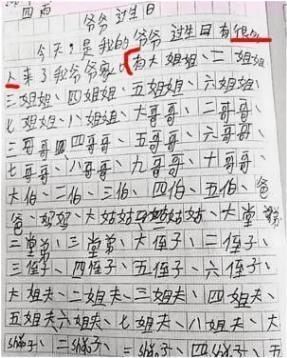 四西
爷爷过生日
今天,是我的爷爷过生日有很多
人来了我爷爷家,有大姐姐、二姐姐、
三姐姐、四姐姐、五姐姐、六姐姐、
七姐姐、八姐姐、大哥哥、二哥哥、
三哥哥、四哥哥、五哥哥、六哥哥、
七哥哥、八哥哥、九哥哥、十哥哥、
大伯、二伯、三伯、四伯、五伯、爸
爸、妈妈、大姑姑、姑姑、大堂弟、
二堂弟、三堂弟、大侄子、二侄子、
三侄子、四侄子、五侄子、六侄子、
大姐夫、二姐夫、三姐夫、四姐夫、
五姐夫六姐夫、七姐夫、八姐夫、大